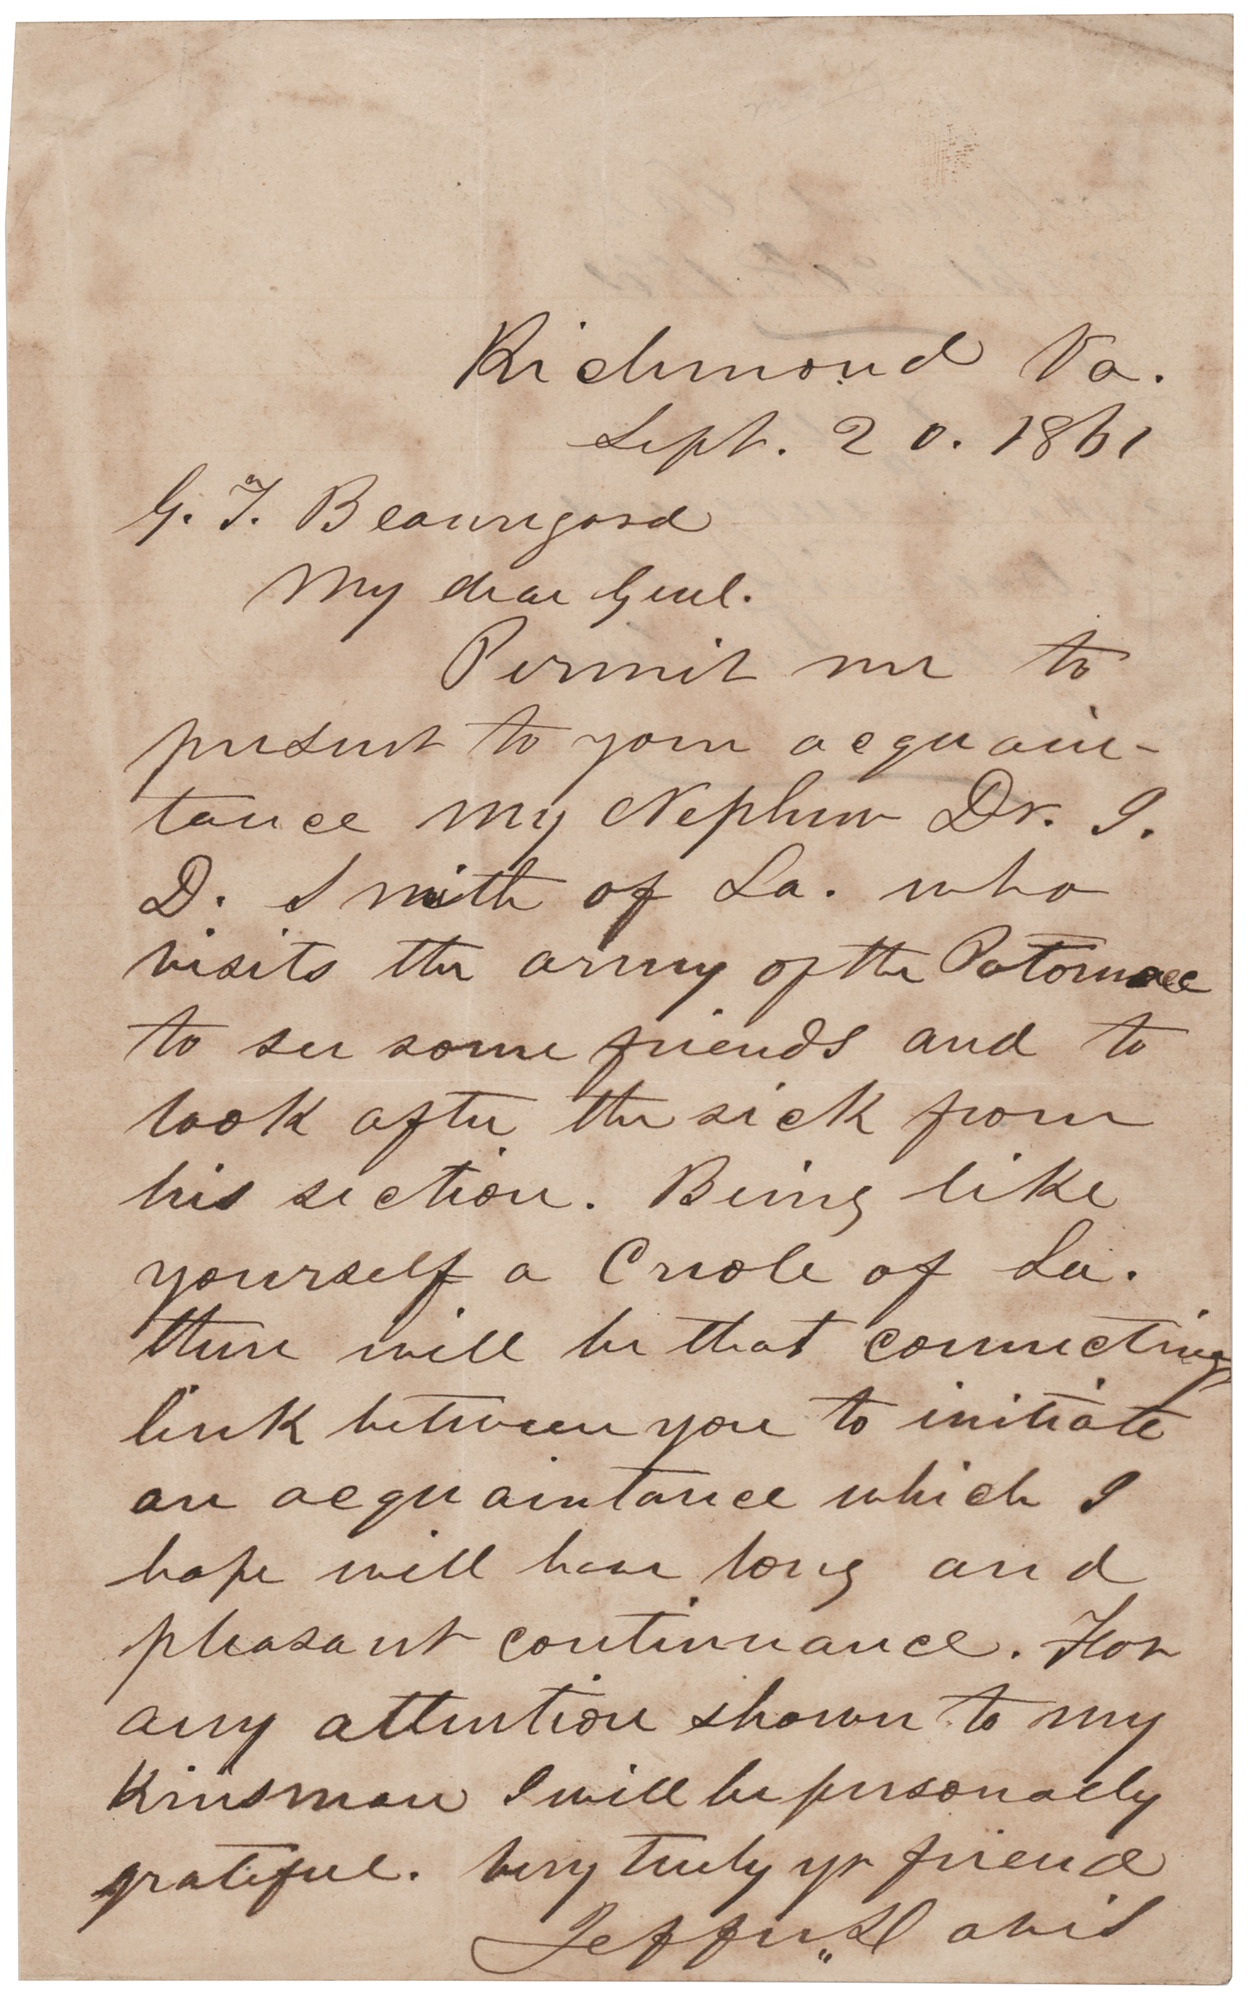 Richmond Va.
Sept. 20. 1861
G. T. Beauregard
My dear Genl.
Permit me to
present to your acquain-
tance my Nephew Dr. J.
D. Smith of La. who
visits the army of the Potomac
to see some friends and to
look after the sick from
his section. Being like
yourself a Creole of La.
there will be that connecting
link between you to initiate
an acquaintance which I
hope will have long and
pleasant continuance. For
any attention shown to my
Kinsman I will be personally
grateful. Very truly yr friend
Jeffn. Davis